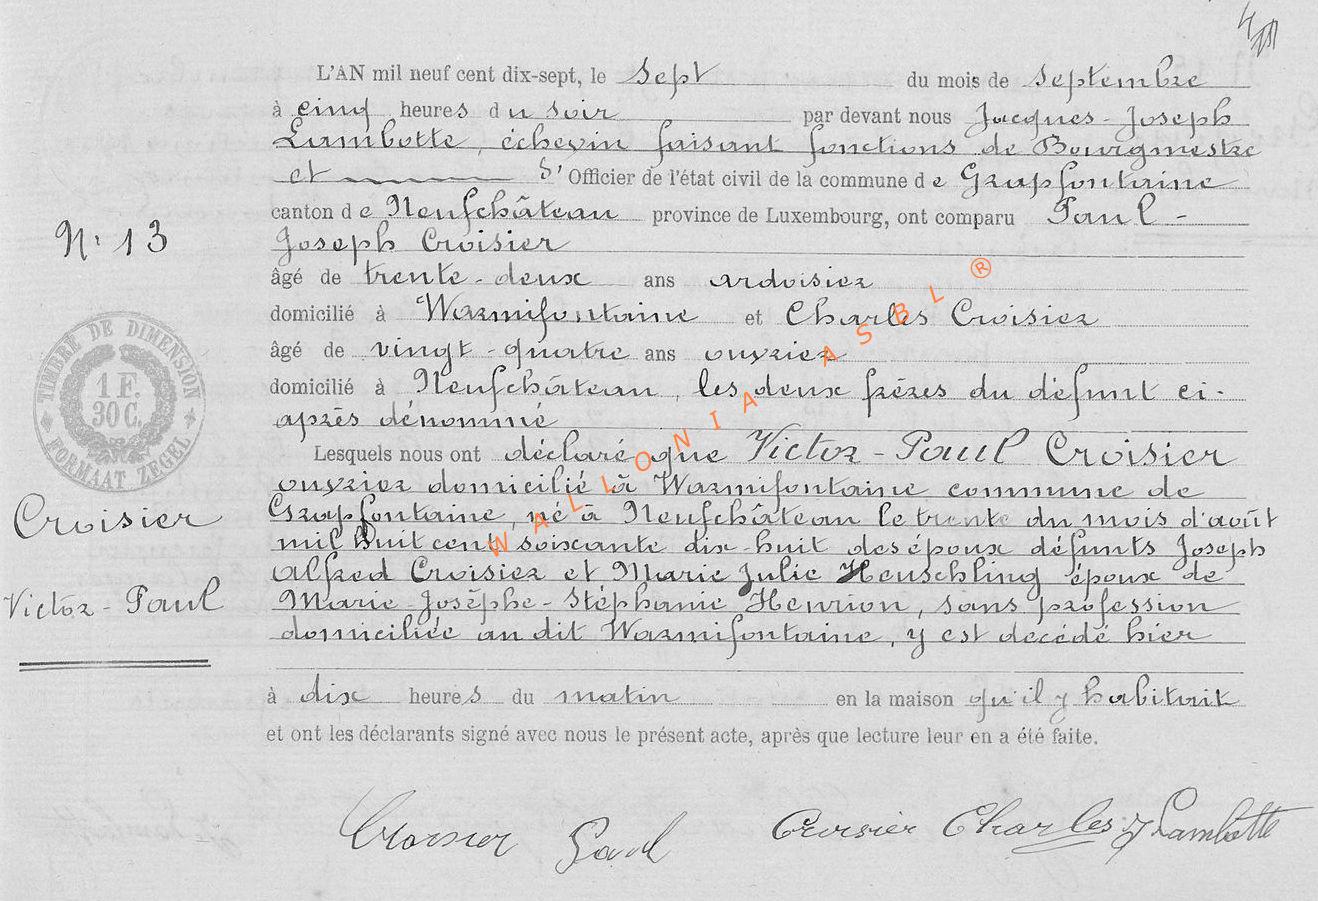 L'AN mil neuf cent dix-sept, le Sept du mois de Septembre
à cinq heures du soir par devant nous Jacques-Joseph
Lambotte, échevin faisant fonctions de Bourgmestre
et Officier de l'état civil de la commune de Grapfontaine
canton de Neufchâteau province de Luxembourg, ont comparu Paul-
N: 13
Joseph Croisier
âgé de trente-deux ans ardoisier
domicilié à Warmifontaine et Charles Croisier
âgé de vingt-quatre ans ouvrier
domicilié à Neufchâteau, les deux frères du défunt ci-
après dénommé
TIMBRE DE DIMENSION
1 F.
30 C.
FORMAAT ZEGEL
Lesquels nous ont déclaré que Victor-Paul Croisier
ouvrier domicilié à Warmifontaine commune de
Croisier
Grapfontaine, né à Neufchâteau le trente du mois d'août
mil huit cent soixante dix-huit des époux défunts Joseph
Alfred Croisier et Marie Julie Heuschling époux de
Victor-Paul
Marie-Josèphe-Stéphanie Henrion, sans profession
domiciliée au dit Warmifontaine, y est décédé hier
à dix heures du matin en la maison qu'il y habitait
et ont les déclarants signé avec nous le présent acte, après que lecture leur en a été faite.
Croisier Paul Croisier Charles J Lambotte
WALLONIA ASBL ®